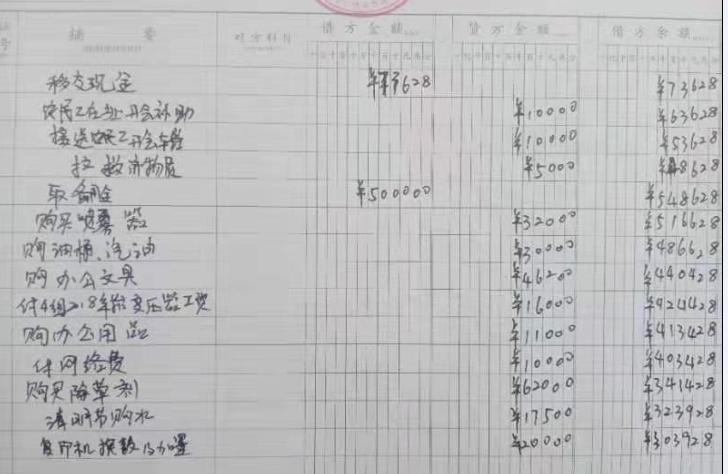 号 摘 要 对方科目 借方金额 贷方金额 借方余额
移交现金 ¥73628 ¥73628
农民工在址开会补助 ¥10000 ¥63628
接送农民工开会车费 ¥10000 ¥53628
拉救济物资 ¥5000 ¥48628
取备用金 ¥500000 ¥548628
购买喷雾器 ¥32000 ¥516628
购油桶、汽油 ¥30000 ¥486628
购办公文具 ¥46200 ¥440428
付4组2018年抬变压器工资 ¥16000 ¥424428
购办公用品 ¥11000 ¥413428
付网络费 ¥10000 ¥403428
购买除草剂 ¥62000 ¥341428
清明节购水 ¥17500 ¥323928
复印机换鼓及加墨 ¥20000 ¥303928